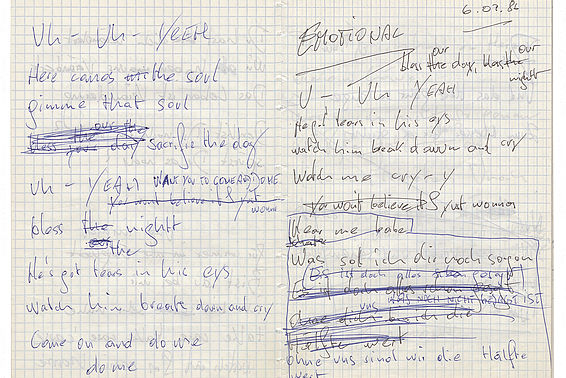 Uh - Uh - YEAH
Here comes the soul
gimme that soul
sacrifie the day
Uh - YEAH WANT YOU TO COME AND DO ME
You wont believe it woman
bless the nightt
the
He's got tears in his eys
Watch him break down and cry
Come on and do me
do me
6.02.82
EMOTIONAL
our our
bless the day, bless the nightt
U - Uh YEAH
He got tears in his eys
watch him break down and cry
Watch me cry - y
You wont believe it woman
Hear me babe
Was sol ich dir noch sagen
Es ist doch alles gesagt
uns WAS NOCH NICHT GESAGT IST
ohne dich bin ich die
Hälfte wert
ohne uns sind wir die Hälfte
wert